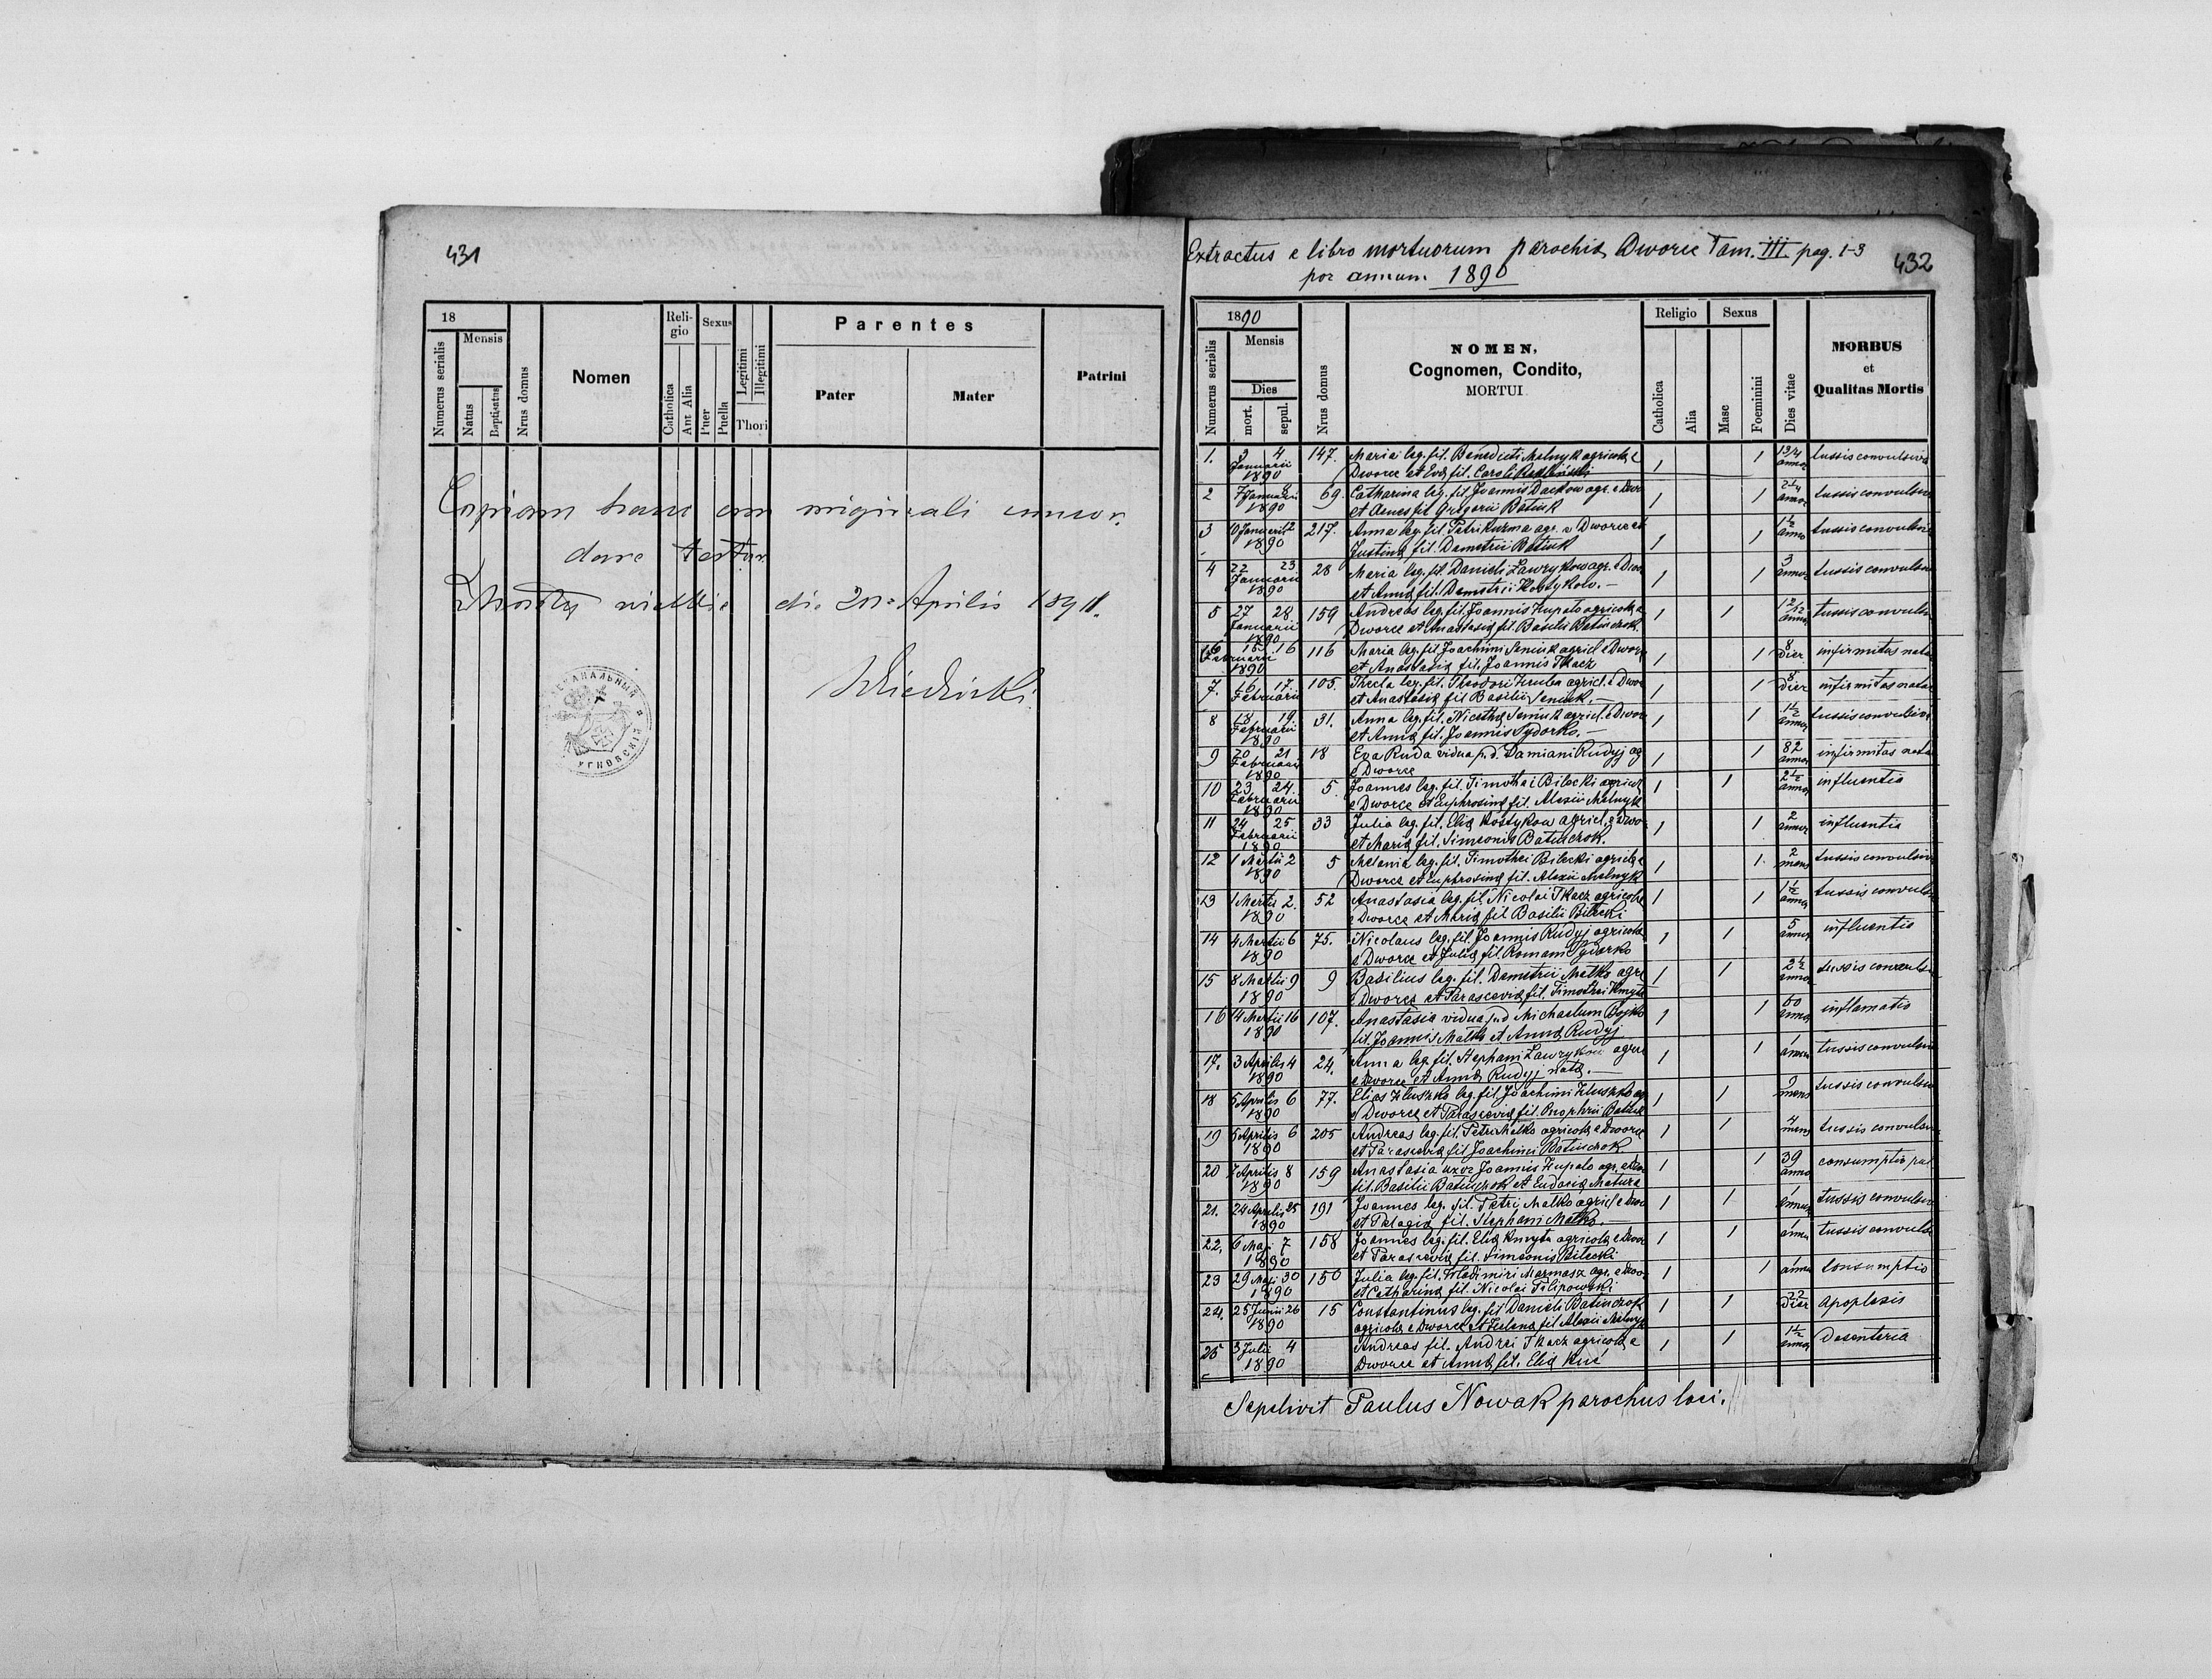 431
18
Numerus serialis
Mensis
Natus
Baptisatus
Nrus domus
Nomen
Religio
Catholica
Aut Alia
Sexus
Puer
Puella
Legitimi
Illegitimi
Thori
Parentes
Pater
Mater
Patrini
Copiam hanc cum originali concor
dare testor.
die 20 Aprilis 1891.
Extractus e libro mortuorum parochiæ Dworce Tom. III pag. 1-3
432
per annum 1890
1890
Numerus serialis
Mensis
Dies
mort.
sepul.
Nrus domus
NOMEN,
Cognomen, Condito,
MORTUI
Religio
Catholica
Alia
Sexus
Masc
Foeminini
Dies vitae
MORBUS
et
Qualitas Mortis
1. 3 4 Januarii 1890 147. Maria leg. fil. Benedicti Melnyk agricolæ e 1 1 tussis convulsiva
Dworce et Evæ fil. Caroli
2 7 Januarii 1890 69. Catharina leg. fil. Joannis Dackow agr. e Dwor 1 1 tussis convulsiva
fil Gregorii Batiuk
3 Januarii 12 1890 217. Anna leg. fil. Petri Kuzma agr. e Dworce et 1 1 1½ anno tussis convulsiva
Justinæ fil. Demetrii Batiuk
4 22 23 Januarii 1890 28 Maria leg. fil. Danieli Lawrykow agr. e Dwor 1 1 3 annor tussis convulsiv
et Annæ fil. Demetrii Kostykow. —
5 27 28 Januarii 1890 159 Andreas leg. fil. Joannis Hupalo agricolæ e 1 1 tussis convuls
Dworce et Anastasiæ fil. Basilii Batiuczok.
6 15 16 Februarii 1890 116 Maria leg. fil. Joachimi Seniuk agricol e Dworc 1 1 8 dier infirmitas nata
et Anastasiæ fil. Joannis Tkacz
7. 16 17 Februarii 105. Thecla leg. fil. Theodori Hruba agricl. e Dwor 1 1 8 dier infirmitas nata
et Anastasiæ fil Basilii Seniuk. —
8 18 19. Februarii 1890 31. Anna leg. fil. Nicethæ Seniuk agricl. e Dwor 1 1 1½ annor tussis convulsiva
et Annæ fil. Joannis Sydorko. —
9 20 21 Februarii 1890 18 Eva Ruda vidua p. d. Damiani Rudyj ag 1 1 82 annor infirmitas nata
e Dworce
10 23 24. Februarii 1890 5. Joannes leg. fil. Timothei Bilecki agricol 1 1 2½ annor influentia
e Dworce et Euphrosinæ fil. Alexii Melnyk
11 24 25 Februarii 1890 33 Julia leg. fil. Eliæ Kostykow agricl. e Dwo 1 1 2 annor influentia
et Mariæ fil. Simeonis Batiuczok.
12 1 Martii 2 1890 5 Melania leg. fil. Timothei Bilecki agricolæ 1 1 2 mens tussis convulsiv
Dworce et Euphrosinæ fil. Alexii Melnyk
13 1 Martii 2. 1890 52 Anastasia leg. fil. Nicolai Tkacz agricolæ 1 1 1½ anno tussis convuls
e Dworce et Mariæ fil Basilii Bilecki
14 4 Martii 6 1890 75. Nicolaus leg. fil. Joannis Rudyj agricolæ 1 1 5 annor influentia
e Dworce et Juliæ fil. Romani Sydorko
15 8 Martii 9 1890 9 Basilius leg. fil. Demetrii Matko agric 1 1 2½ annor tussis convuls
e Dworce et Parasceviæ fil. Timothei Kmyta
16 14 Martii 16 1890 107. Anastasia vidua p. d Michaelum Bojko 1 1 60 annor inflamatio
fil. Joannis Matko et Annæ Rudyj
17. 3 Aprilis 4 1890 24. Anna leg. fil. Stephani Lawrykow agric 1 1 1 annu tussis convulsiv
e Dworce et Annæ Rudyj natæ. —
18 5 Aprilis 6 1890 77. Elias Hluszko leg. fil. Joachimi Hluszko ag 1 1 9 mens tussis convulsiv
e Dworce et Parasceviæ fil. Onophrii Batiuk
19 5 Aprilis 6 1890 205 Andreas leg. fil. Petri Matko agricolæ e Dworce 1 1 4 mens tussis convulsiv
et Parasceviæ fil. Joachimi Batiuczok
20 7 Aprilis 8 1890 159 Anastasia uxor Joannis Hupalo agr. e Dwo 1 1 39 anno consumptio pul
fil. Basilii Batiuczok et Eudociæ Matura
21. 24 Aprilis 25 1890 191 Joannes leg. fil. Petri Matko agricl e Dwo 1 1 1 annus tussis convulsiv
et Pelagiæ fil. Stephani Matko. —
22. 6 Maji 7 1890 158 Joannes leg. fil. Eliæ Kmyta agricolæ e Dwor 1 1 1 annu tussis convuls
et Parasceviæ fil. Simeonis Bilecki
23 29 Maji 30 1890 150 Julia leg. fil. Wladimiri Marmasz agr. e Dwo 1 1 1 annu Consumptio
et Catharinæ fil. Nicolai Filipowski
24. 25 Junii 26 1890 15 Constantinus leg. fil Danieli Batiuczok 1 1 22 dier apoplexis
agricolæ e Dworce et Helenæ fil Alexii Melnyk
25 3 Julii 4 1890 Andreas fil. Andrei Tkacz agricolæ e 1 1 1½ anno Desenteria
Dworce et Annæ fil. Eliæ Kuć
Sepelivit Paulus Nowak parochus loci.